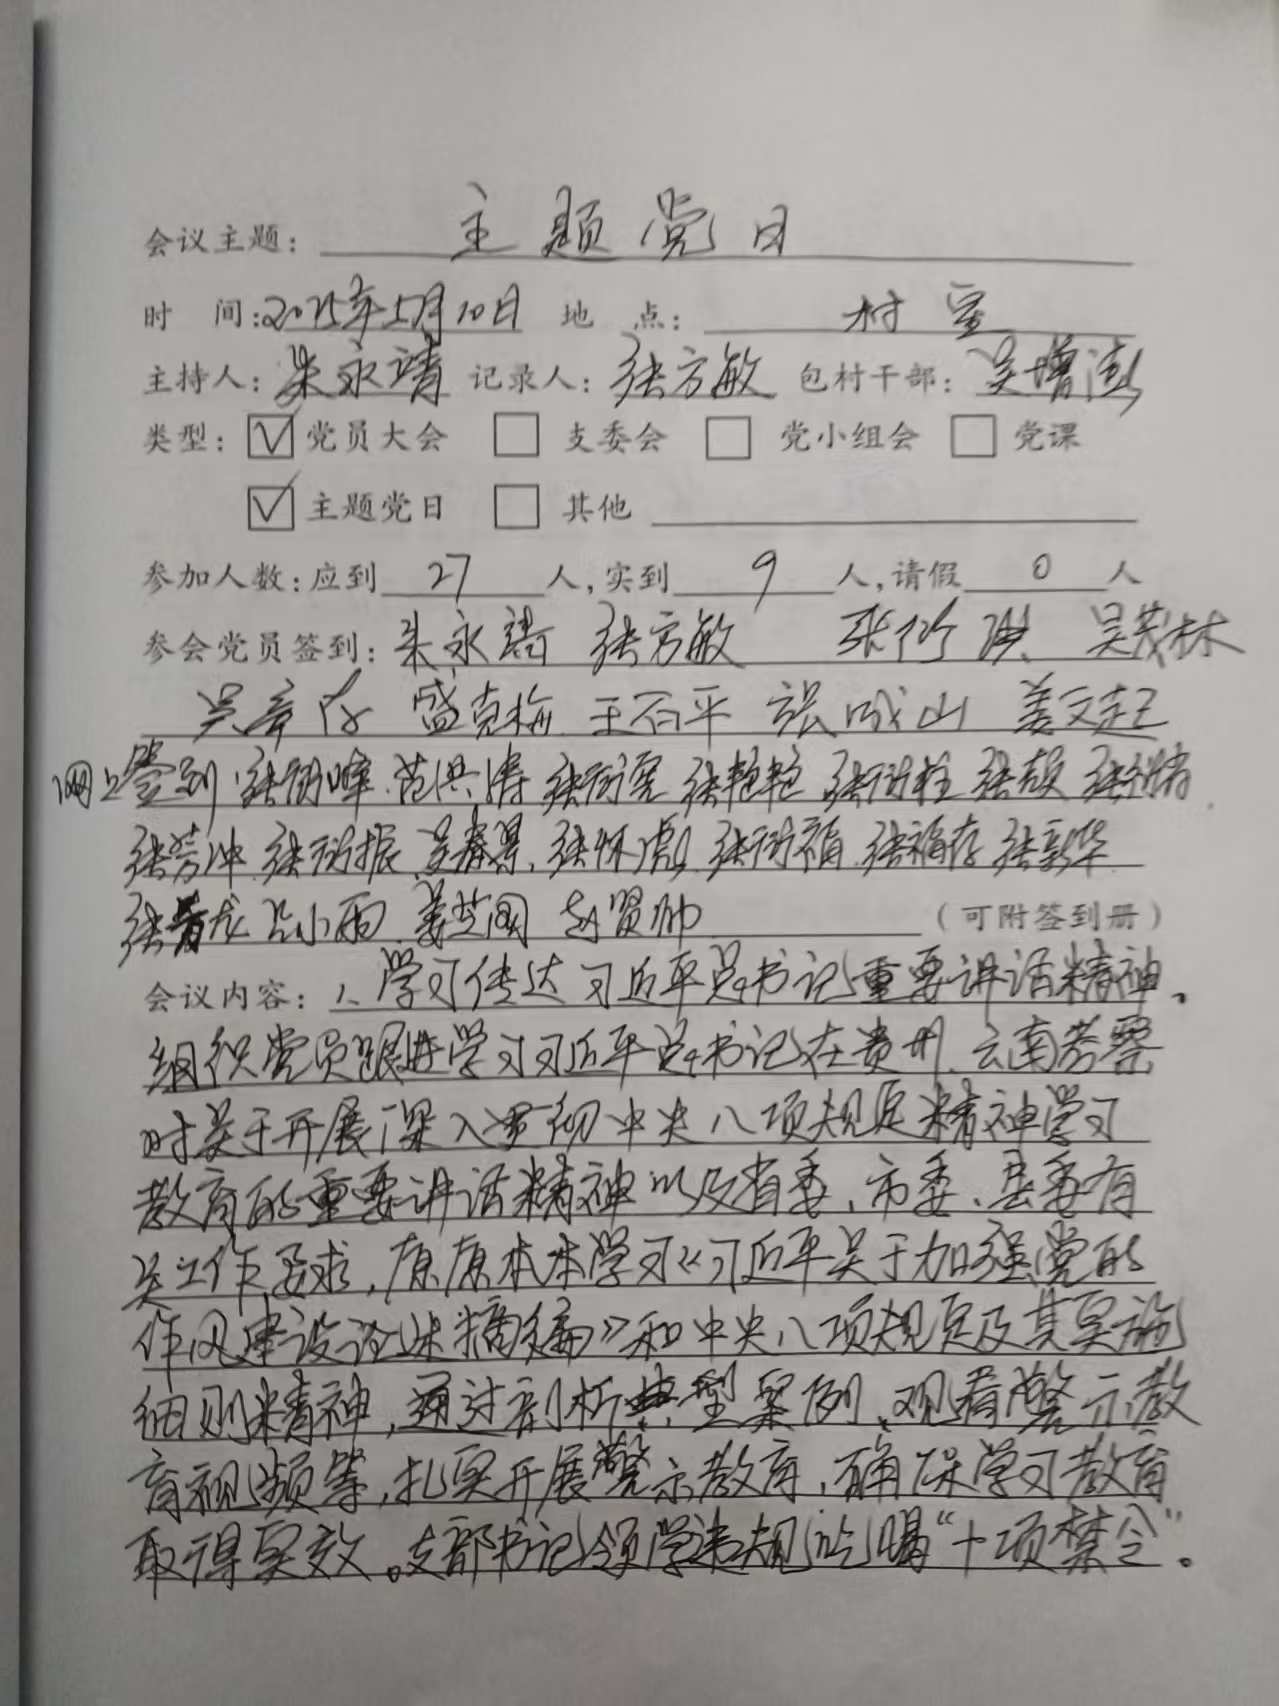 会议主题： 主题党日
时 间：2025年5月10日 地 点： 村室
主持人：朱永靖 记录人：张方敏 包村干部：吴增
类型：☑党员大会 □支委会 □党小组会 □党课
☑主题党日 □其他
参加人数：应到 27 人，实到 9 人，请假 0 人
参会党员签到：朱永靖 张方敏 张衍洪 吴茂林
吴章存 盛克梅 王石平 张成山 姜文起
网上签到：张衍峰 范洪涛 张衍宽 张艳艳 张衍柱 张颖
张芳冲 张衍振 吴春景 张怀彪 张衍福 张福存 张新华
张青龙 吕小雨 姜芝图 赵贤帅 （可附签到册）
会议内容：1、学习传达习近平总书记重要讲话精神。
组织党员跟进学习习近平总书记在贵州、云南考察
时关于开展深入贯彻中央八项规定精神学习
教育的重要讲话精神以及省委、市委、县委有
关工作要求，原原本本学习《习近平关于加强党的
作风建设论述摘编》和中央八项规定及其实施
细则精神，通过剖析典型案例、观看警示教
育视频等，扎实开展警示教育，确保学习教育
取得实效。支部书记领学违规吃喝“十项禁令”。